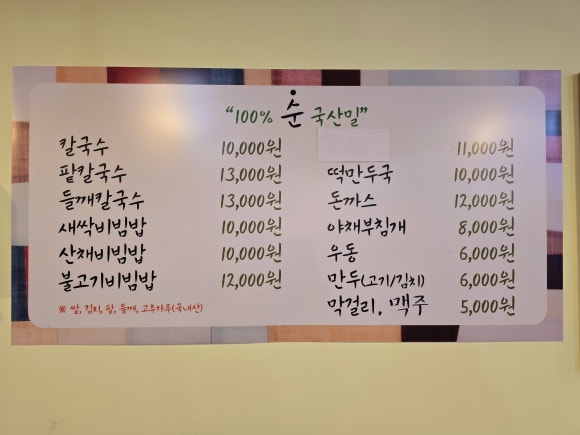 “100% 순 국산밀”
칼국수 10,000원
팥칼국수 13,000원
들깨칼국수 13,000원
새싹비빔밥 10,000원
산채비빔밥 10,000원
불고기비빔밥 12,000원
※ 쌀, 김치, 팥, 들깨, 고추가루(국내산)
11,000원
떡만두국 10,000원
돈까스 12,000원
야채부침개 8,000원
우동 6,000원
만두(고기/김치) 6,000원
막걸리, 맥주 5,000원